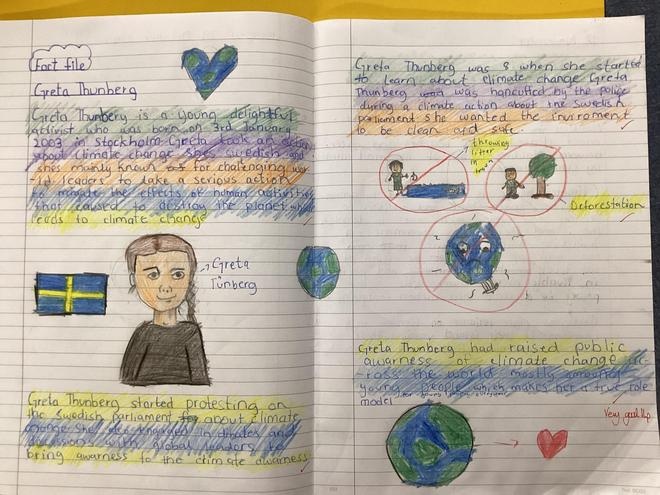 Fact file
Greta Thunberg
Greta Thunberg is a young delightful
activist who was born on 3rd January
2003 in Stockholm Greta took an action
about climate change she swedish and
she mainly known for challenging wor
ld leaders to take a serious action
to mitigate the effects of human activities
that caused to destroy the planet
leads to climate change
Greta
Tunberg
Greta Thunberg started protesting on
the Swedish parliament for about climate
change she in debates and
discussions with global leaders to
bring awarness to the climate awarness
Greta Thunberg was 8 when she started
to learn about climate change Greta
Thunberg was hancuffed by the police
during a climate action about the Swedish
parliament she wanted the inviroment
to be clean and safe.
throwing
litter
in
Deforestation
Greta Thunberg had raised public
awarness of climate change
ross the world mostly amoung
young people which makes her a true role
model
Very good